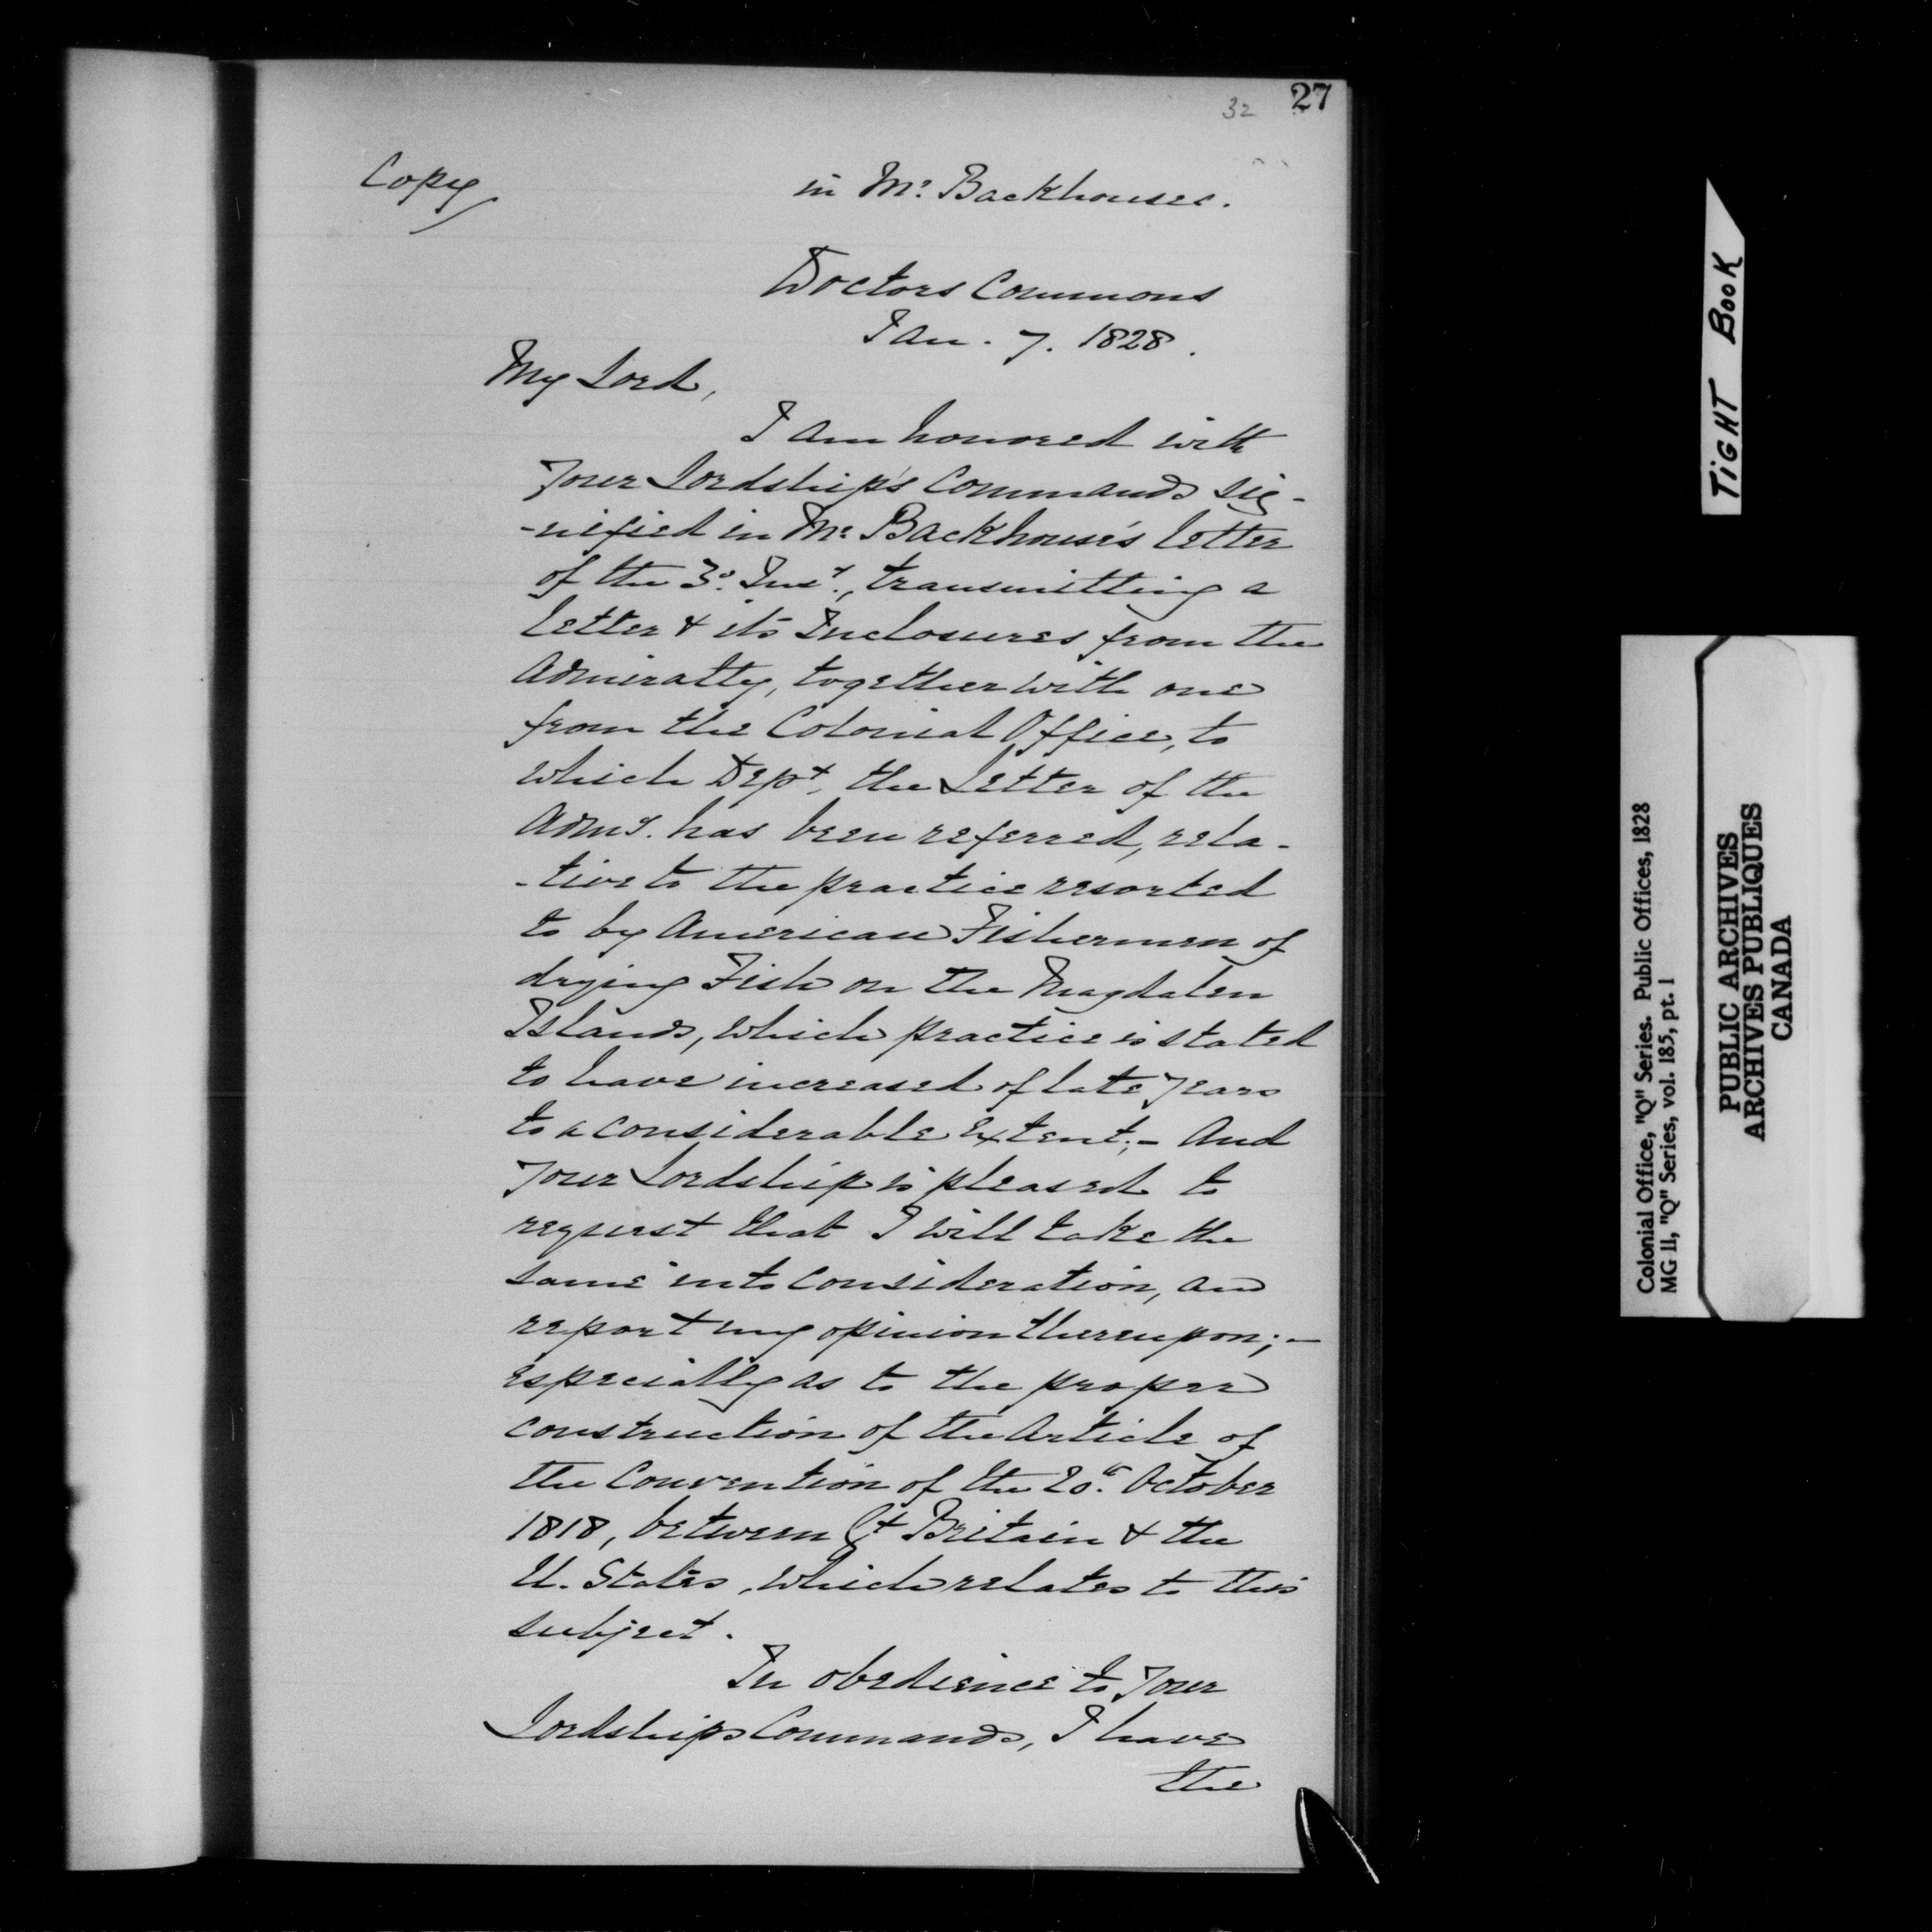 32 27
Copy
in Mr. Backhouses.
Doctors Commons
Jan. 7. 1828.
My Lord,
I am honored with
Your Lordship's Commands sig-
-nified in Mr. Backhouse's letter
of the 3d. Inst., transmitting a
letter & its Inclosures from the
Admiralty, together with one
from the Colonial Office, to
which Dept. the Letter of the
Admy. has been referred, rela-
-tive to the practice resorted
to by American Fishermen of
drying Fish on the Magdalen
Islands, which practice is stated
to have increased of late Years
to a considerable extent; - And
Your Lordship is pleased to
request that I will take the
same into Consideration, and
report my opinion thereupon; -
especially as to the proper
construction of the Article of
the Convention of the 20th. October
1818, between Gt Britain & the
U. States, which relates to this
subject.
In obedience to Your
Lordships Commands, I have
the
TIGHT BOOK
Colonial Office, "Q" Series. Public Offices, 1828
MG 11, "Q" Series, vol. 185, pt. 1
PUBLIC ARCHIVES
ARCHIVES PUBLIQUES
CANADA